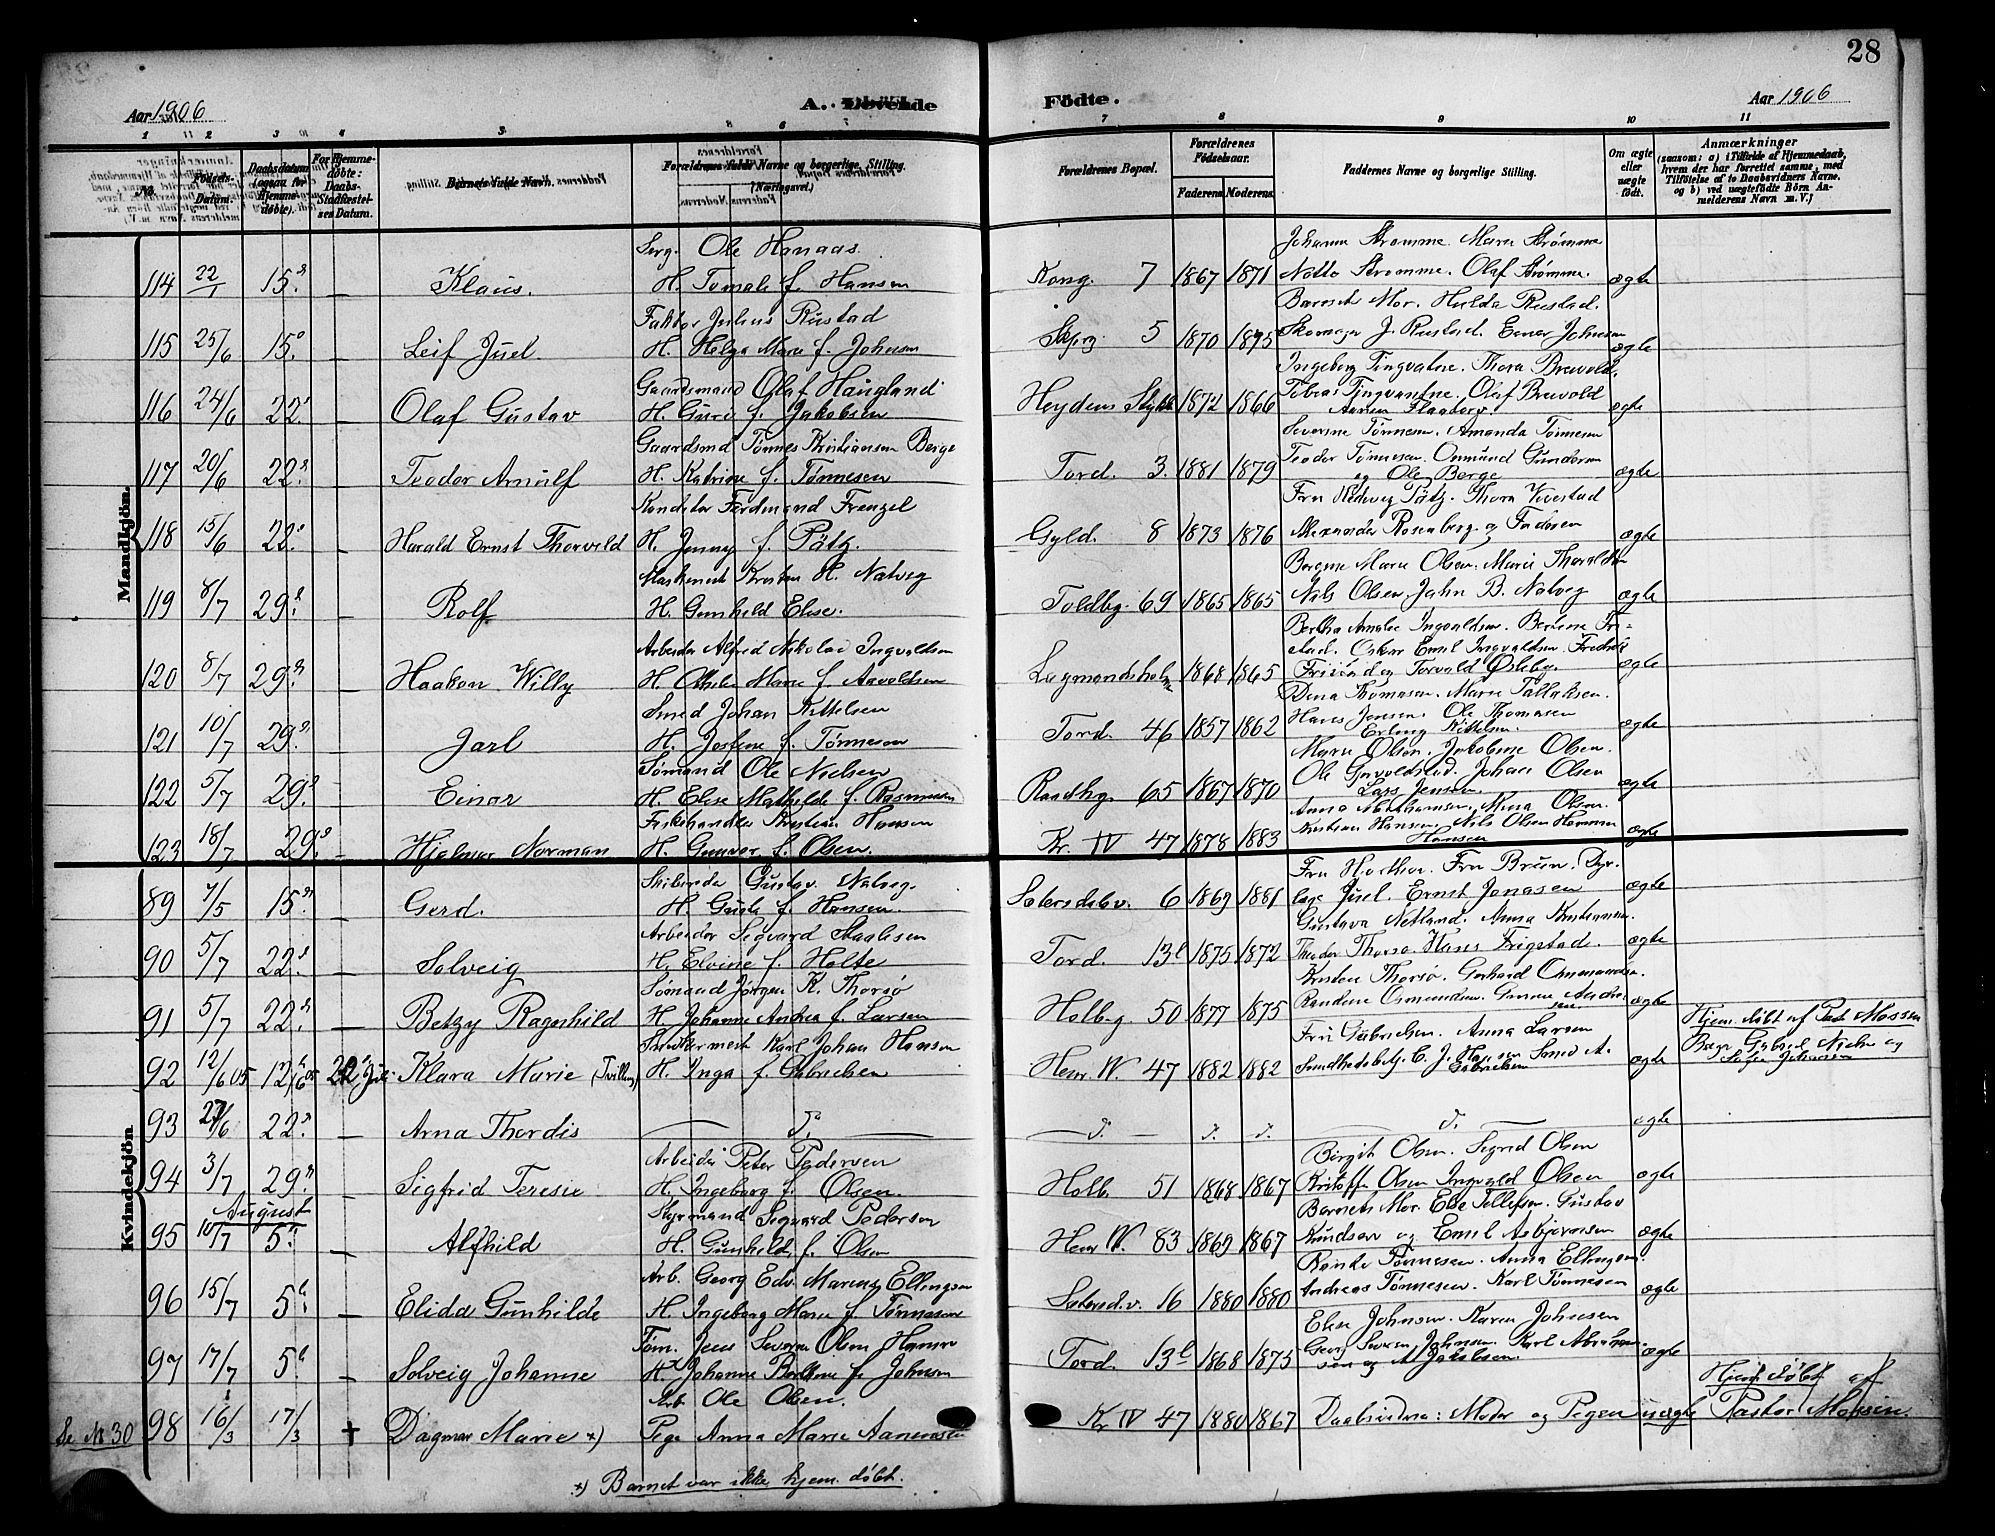 28
Aar 1906
A. Levende
Födte.
Aar 1906
1 2 3 4 5 6 7 8 9 10 11
No.
Födsels-Datum.
Daabsdatum (ogsaa for Hjemmedöbte).
For Hjemmedöbte: Daabs-Stadfæstelses Datum.
Börnets fulde Navn.
Forældrenes fulde Navne og borgerlige Stilling. (Næringsvei.)
Forældrenes Bopæl.
Forældrenes Födselsaar.
Faderens Moderens
Faddernes Navne og borgerlige Stilling.
Om ægte eller uægte födt.
Anmærkninger
(saasom: a) i Tilfælde af Hjemmedaab, hvem der har forrettet samme, med Tilföielse af to Daabsvidners Navne, og b) ved uægtefödte Börn Anmelderens Navn m. V.)
Mandkjön.
Serg. Ole Hanaas Johanne Strømme. Marie Strømme
114 22/1 15 — Klaus. H. Tomale f. Hansen Kong. 7 1867 1871 Notto Strømme. Olaf Strømme. ægte
Faktor Julius Rustad Barnets Mor. Hulda Rustad.
115 25/6 15 — Leif Juel H. Helga Marie f. Johnsen 5 1870 1875 Skomager J. Rustad. Einar Johnsen ægte
Gaardsmand Olaf Haugland Ingeborg Tingvatne. Thora Brevold.
116 24/6 22. — Olaf Gustav H. Guri f. Jakobsen Heydens 1872 1866 Tobias Tingvatne. Olaf Brevold ægte
Gaardsmd Tønnes Kristiansen Berge Severine Tønnesen. Amanda Tønnesen
117 20/6 22. — Teodor Arnulf H. Katrine f. Tønnesen Tord. 3. 1881 1879 Teodor Tønnesen. Osmund Gundersen ægte
og Ole Berge
Konditor Ferdinand Frenzel Fru Hedvig Pätz. Thora Kvestad
118 15/6 22. — Harald Ernst Thorvald H. Jenny f. Pätz. Gyld. 8 1873 1876 Alexander Rosenberg og Faderen ægte
Maskinist Kristen H. Natvig Bergine Marie Olsen. Marie
119 8/7 29. Rolf H. Gunhild Elise. Toldbg. 69 1865 1865 Nils Olsen. Jahn B. Natvig ægte
Arbeider Alfred Nikolai Ingvaldsen Bertha Amalie Ingvaldsen. Berline Fri-
stad. Oskar Emil Ingvaldsen. Fredrik
120 8/7 29. — Haakon Willy H. Othelie Marie f. Aavoldsen Lagmandsholm 1868 1865 Frisund og Torvald Osleby. ægte
Smed Johan Kittelsen Dina Thomasen. Marie Tallaksen.
121 10/7 29. — Jarl H. Josfine f. Tønnesen Tord. 46 1857 1862 Hans Jensen. Ole Thomasen ægte
Erling Kittelsen
Sømand Ole Nielsen Marie Olsen. Jakobine Olsen.
122 5/7 29. — Einar H. Elise Mathilde f. Rasmussen Randbg. 65 1867 1870 Ole Johan Olsen ægte
Lars Jensen.
Fiskehandler Kristian Hansen Anna Abrahamsen. Mina Olsen.
123 18/7 29. — Hjalmar Norman H. Gunvor f. Olsen. Kr. IV 47 1878 1883 Kristian Hansen. Nils Olsen ægte
Hansen
Kvindekjön
Skibsreder Gustav Natvig. Fru Horthen. Fru Bruun.
89 7/5 15. — Gerd. H. Gusta f. Hansen. Setersdalsv. 6 1869 1881 Juel. Ernst Jonassen ægte
Arbeider Segvard Staalesen Gustava Netland. Anna Kristiansen.
90 5/7 22. — Solveig H. Elvine f. Holte Tord. 13 1875 1872 Theodor Thorsø. Hans Frigstad. ægte
Sømand Jørgen K. Thorsø Kristen Thorsø. Gerhard Osmundsen.
91 5/7 22. — Betzy Ragnhild H. Johanne Andrea f. Larsen Holbg. 50 1877 1875 Randine Osmundsen. ægte
Hjem. døbt af Past. Mossen
Karl Johan Hansen Fru Gabrielsen. Anna Larsen
92 12/6 05 12/6 05 22. Juli Klara Marie (Tvilling) H. Inga f. Gabrielsen Henr. W. 47 1882 1882 Sundhedsbetj. C. J. Hansen Smed A. Gabrielsen ægte
Sofie Johansen
93 27/6 22. — Arna Thordis — d. — — d. — d. d. — d. — ægte
Arbeider Peter Pedersen Birgit Olsen. Sigrid Olsen
94 3/7 29. — Sigfrid Teresie H. Ingeborg f. Olsen. Holb. 51 1868 1867 Kristoffer Olsen Ingvald Olsen ægte
August
Styrmand Sigvard Pedersen Barnets Mor. Else Tellefsen. Gustav
95 10/7 5. — Alfhild H. Gunhild f. Olsen Henr. W. 83 1869 1867 Knudsen og Emil Asbjørnsen ægte
Arb. Georg Edv. Marensius Ellingsen Tønnesen. Anna Ellingsen.
96 15/7 5. — Elida Gunhilde H. Ingeborg Marie f. Tønnesen Setersd.v. 16 1880 1880 Andreas Tønnesen. Karl Tønnesen ægte
Tøm. Jens Severin Olsen Elise Johnsen. Karen Johnsen
97 17/7 5. — Solveig Johanne H. Johanne Bertine f. Johnsen Tord. 13 1868 1875 Georg Severin Johnsen. Karl Abrahamsen og A. Jakobsen. ægte
Arb. Ole Olsen. Hjem. døbt af
Se N 30 98 16/3 17/3 † Dagmar Marie ×) Pige Anna Marie Aanensen Kr. IV 47 1880 1867 Daabsvidner: Moder og Pigen uægte Pastor Mossin.
×) Barnet var ikke hjem. døbt.